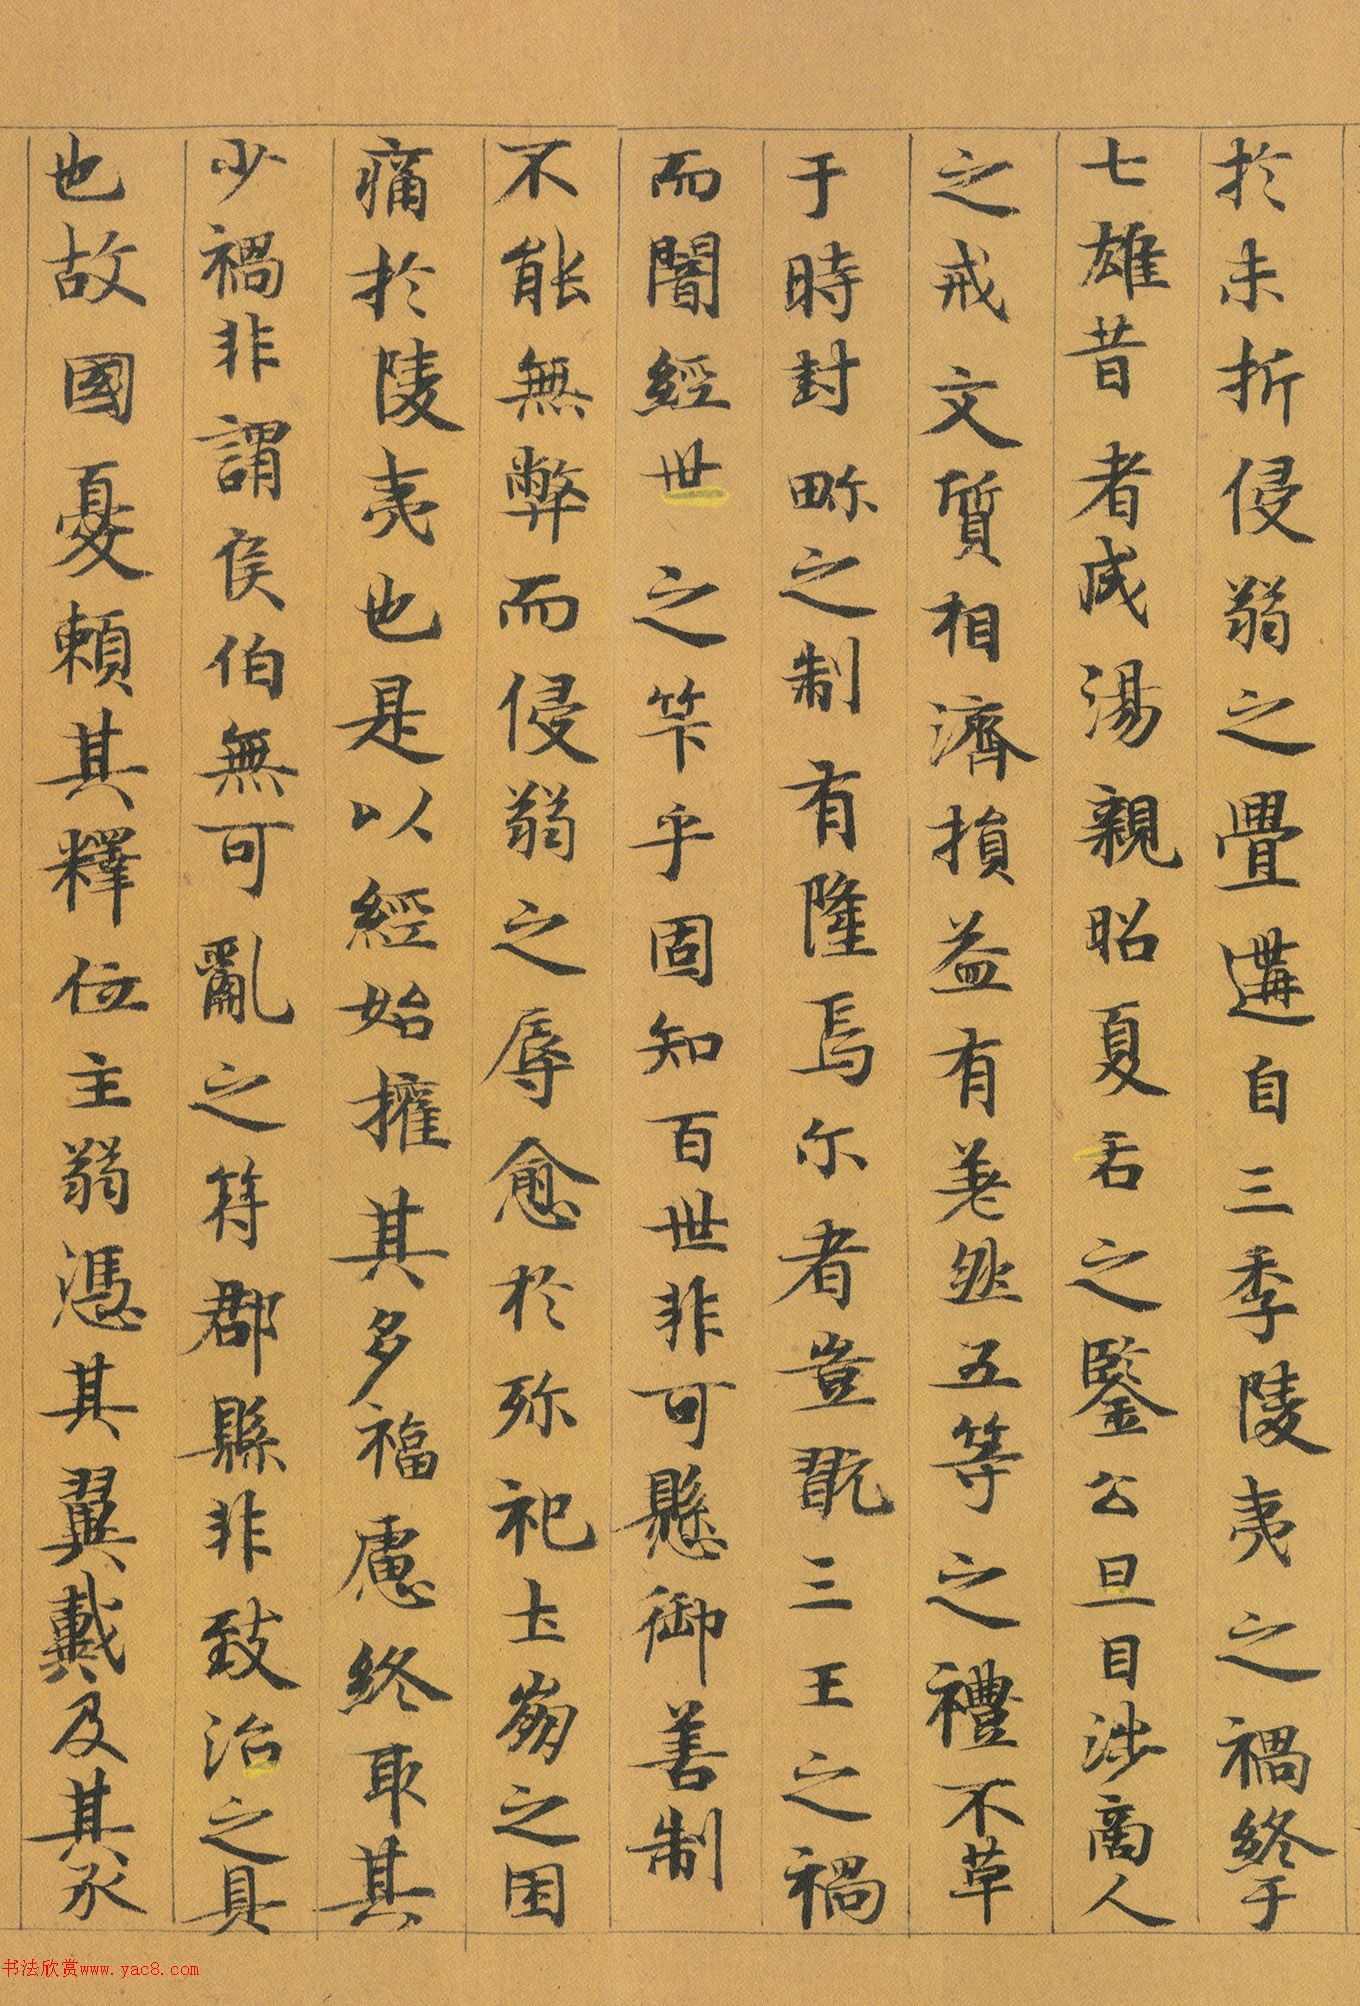 於未折侵弱之舋遘自三季陵夷之禍終于
七雄昔者成湯親昭夏后之鑒公旦目涉商人
之戒文質相濟損益有差然五等之禮不革
于時封畛之制有隆焉尔者豈翫三王之禍
而闇經世之笇乎固知百世非可懸御善制
不能無弊而侵弱之辱愈於殄祀土崩之困
痛於陵夷也是以經始擁其多福慮終取其
少禍非謂侯伯無可亂之符郡縣非致治之具
也故國憂賴其釋位主弱憑其翼戴及其承
书法欣赏www.yac8.com